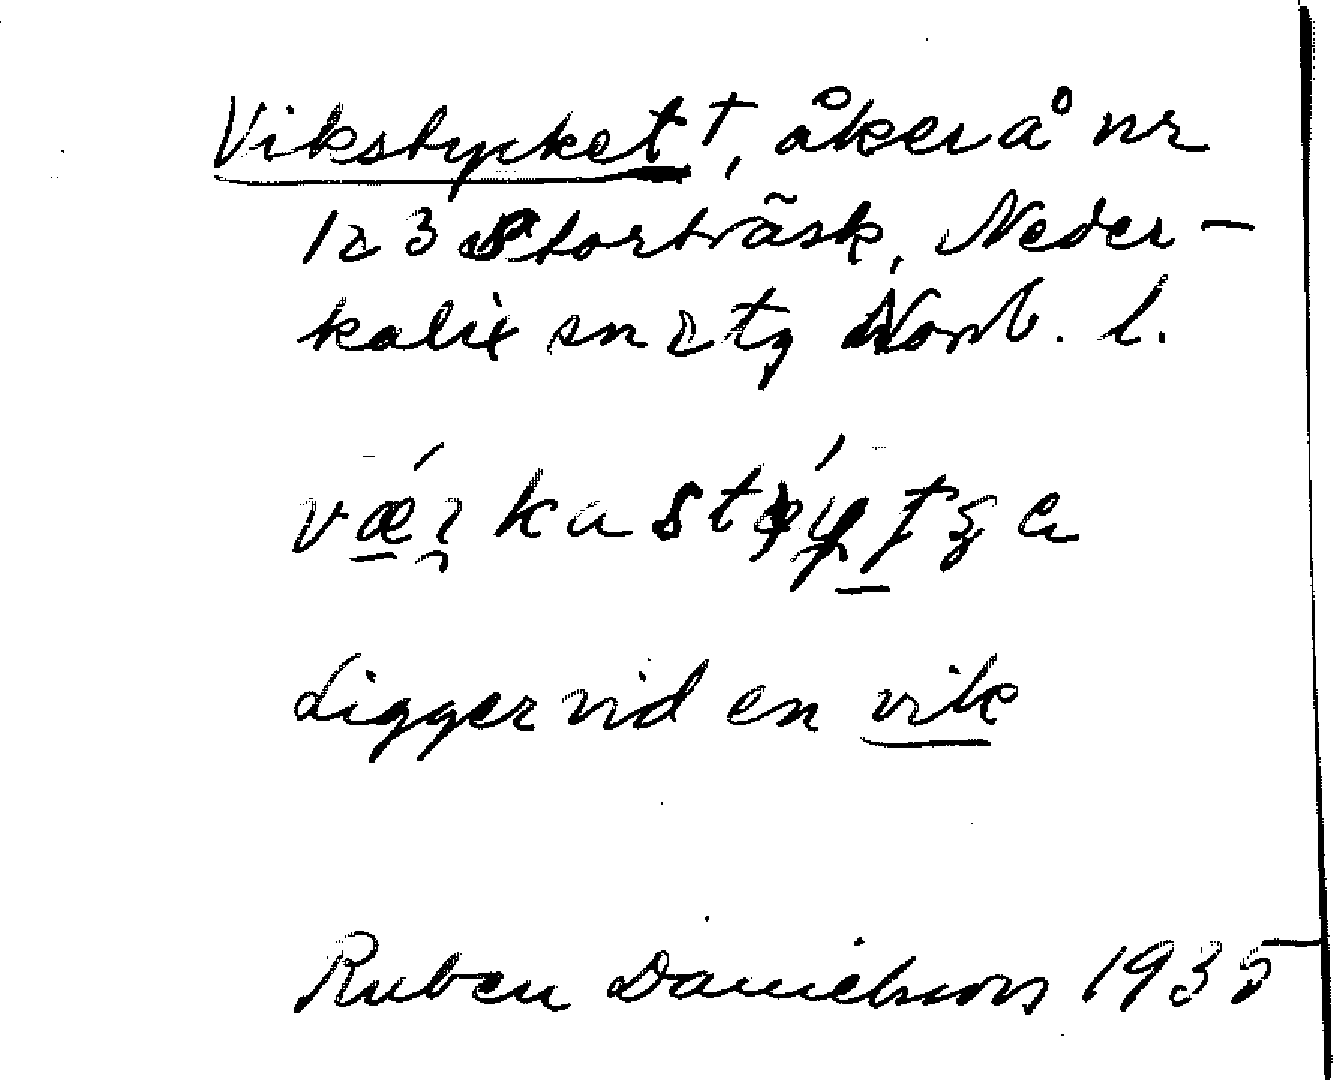 Vikstycket †, åker å nr
1 2 3 Storträsk, Neder-
kalix sn o tg Norrb. l.
Ligger vid en vik
Ruben Danielsson 1935